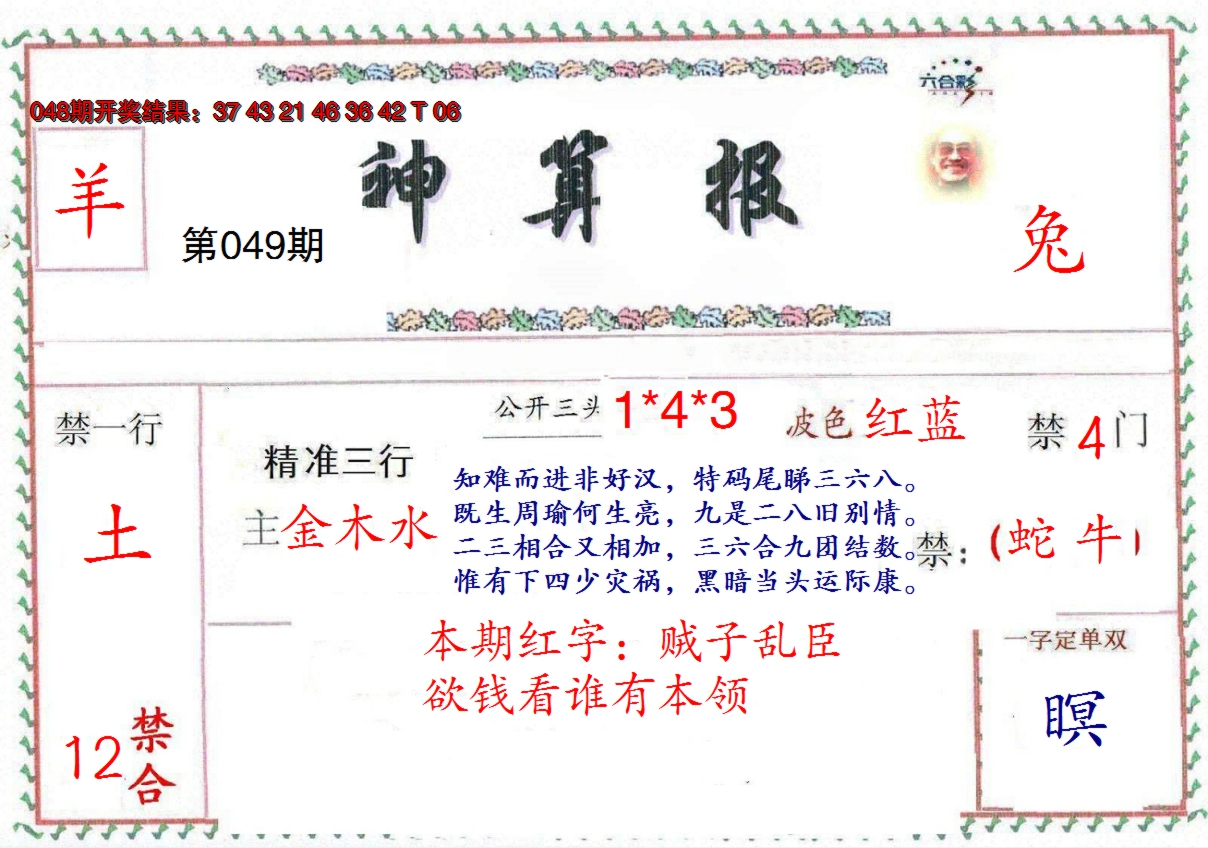 六合彩
048期开奖结果：37 43 21 46 36 42 T 06
羊
神算报
第049期
兔
公开三头 1*4*3
波色 红蓝
禁一行
土
12 禁合
精准三行
主金木水
知难而进非好汉，特码尾睇三六八。
既生周瑜何生亮，九是二八旧别情。
二三相合又相加，三六合九团结数。
惟有下四少灾祸，黑暗当头运际康。
禁 4 门
禁：（蛇 牛）
本期红字：贼子乱臣
欲钱看谁有本领
一字定单双
瞑